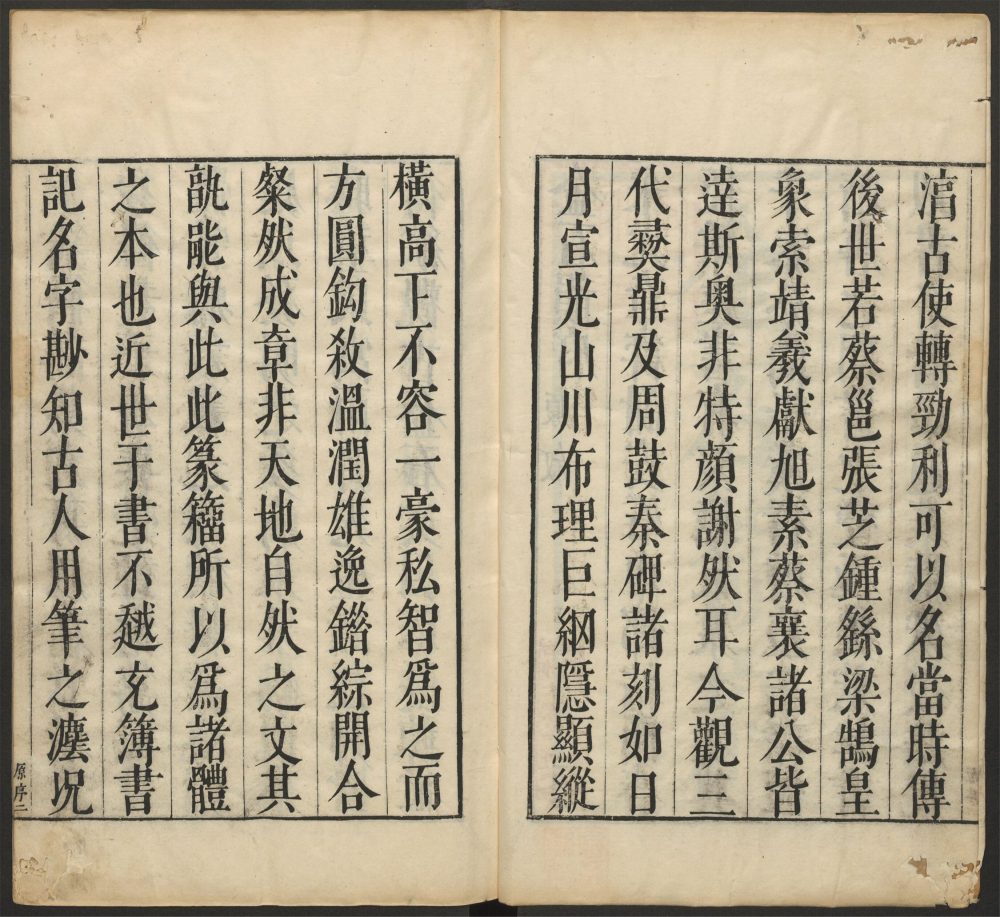 㴠古使轉勁利可以名當時傳
後世若蔡邕張芝鍾繇梁鵠皇
象索靖羲獻旭素蔡襄諸公皆
逹斯奧非特顔謝然耳今觀三
代彛鼎及周鼓秦碑諸刻如日
月宣光山川布理巨綱隱顯縱
橫高下不容一豪私智爲之而
方圓鈎殺溫潤雄逸錯綜開合
粲然成章非天地自然之文其
孰能與此此篆籒所以爲諸體
之本也近世于書不越充簿書
記名字尠知古人用筆之灋況
原序二